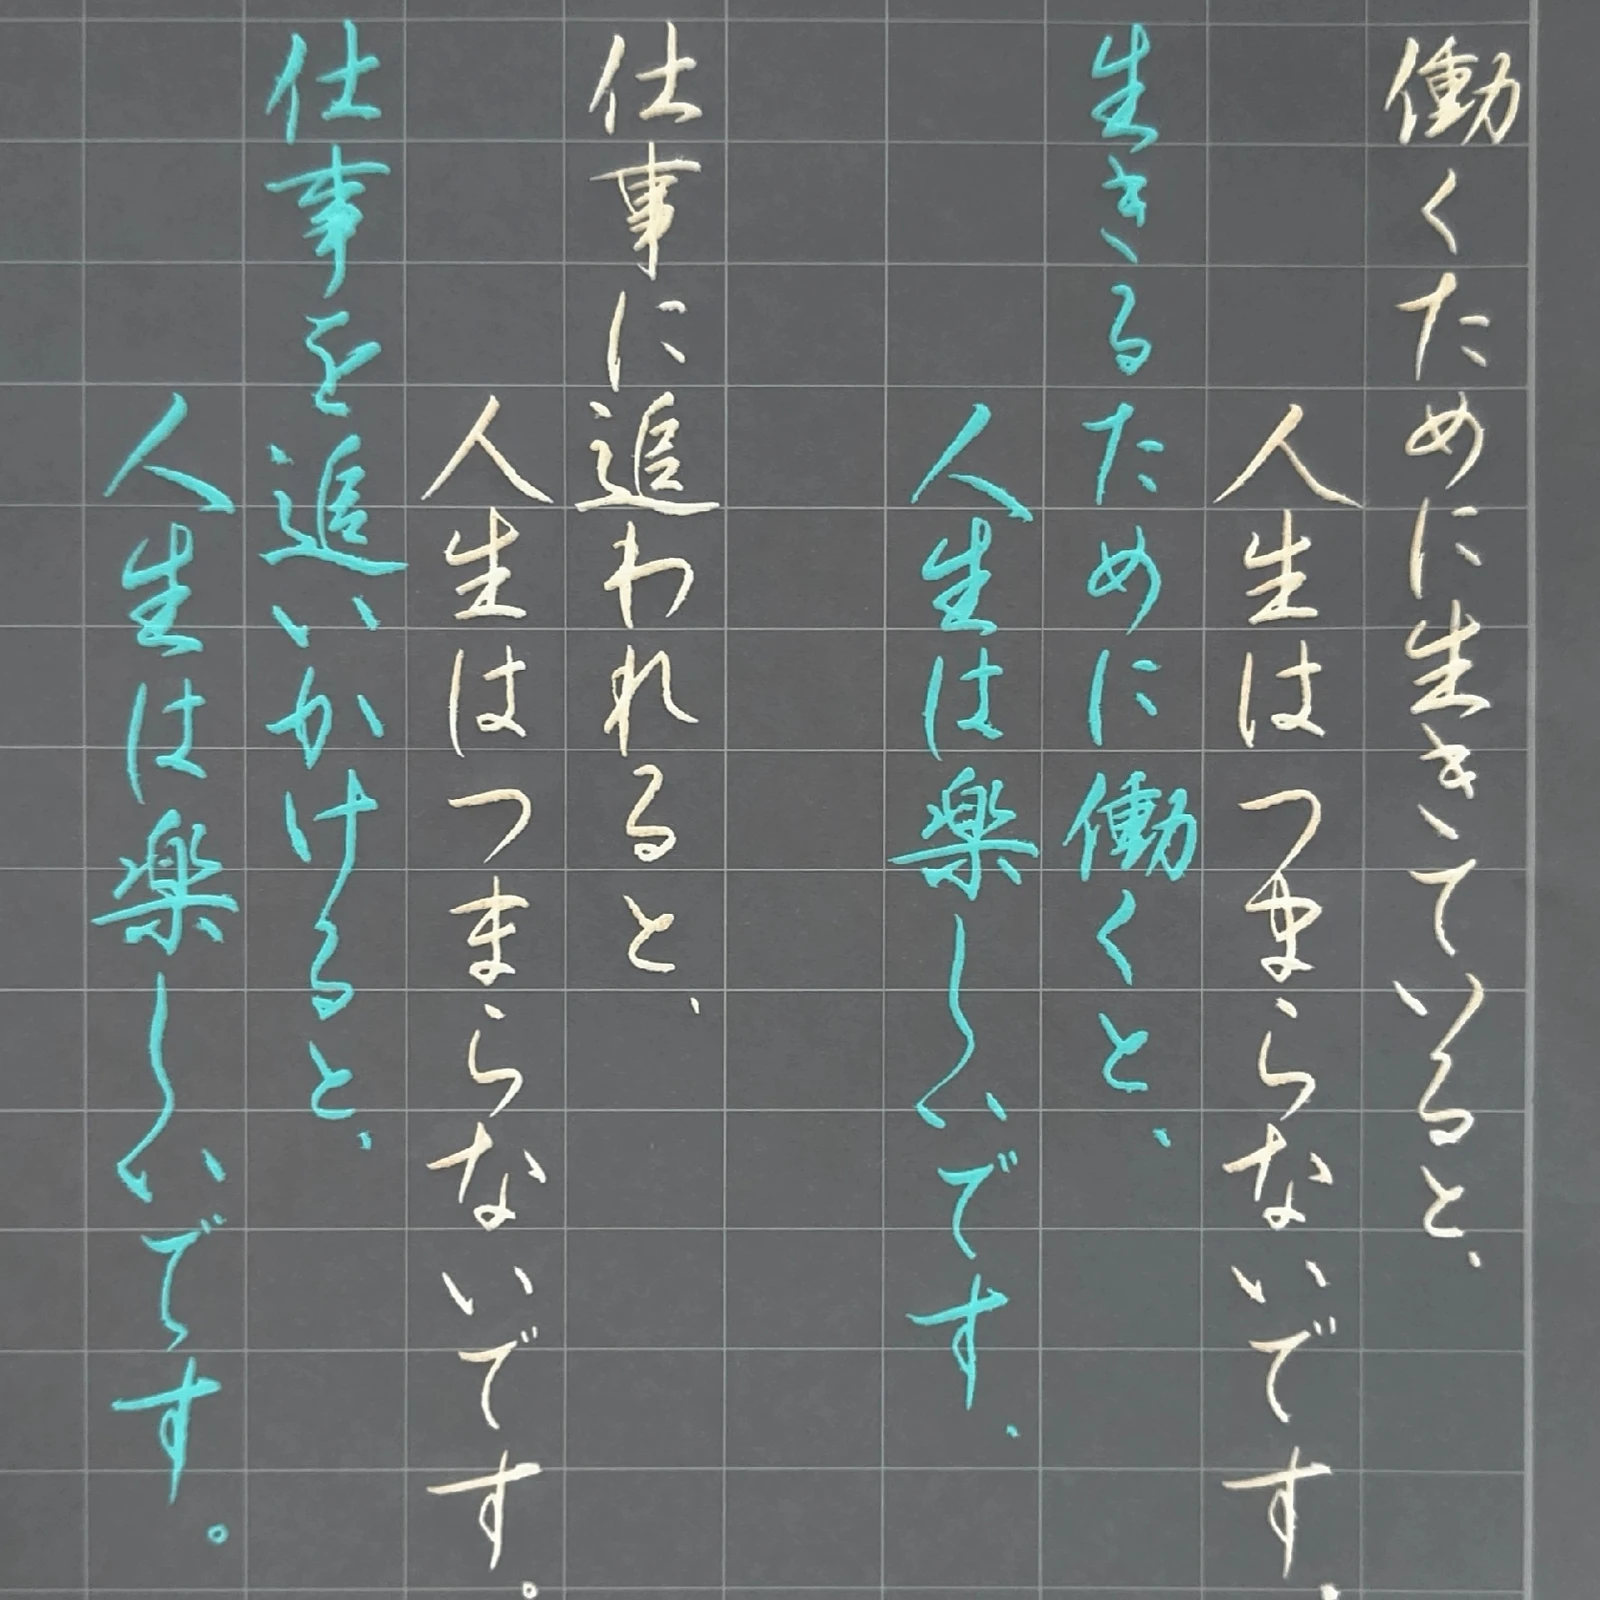 働くために生きていると、
人生はつまらないです.
生きるために働くと、
人生は楽しいです.
仕事に追われると、
人生はつまらないです。
仕事を追いかけると、
人生は楽しいです。